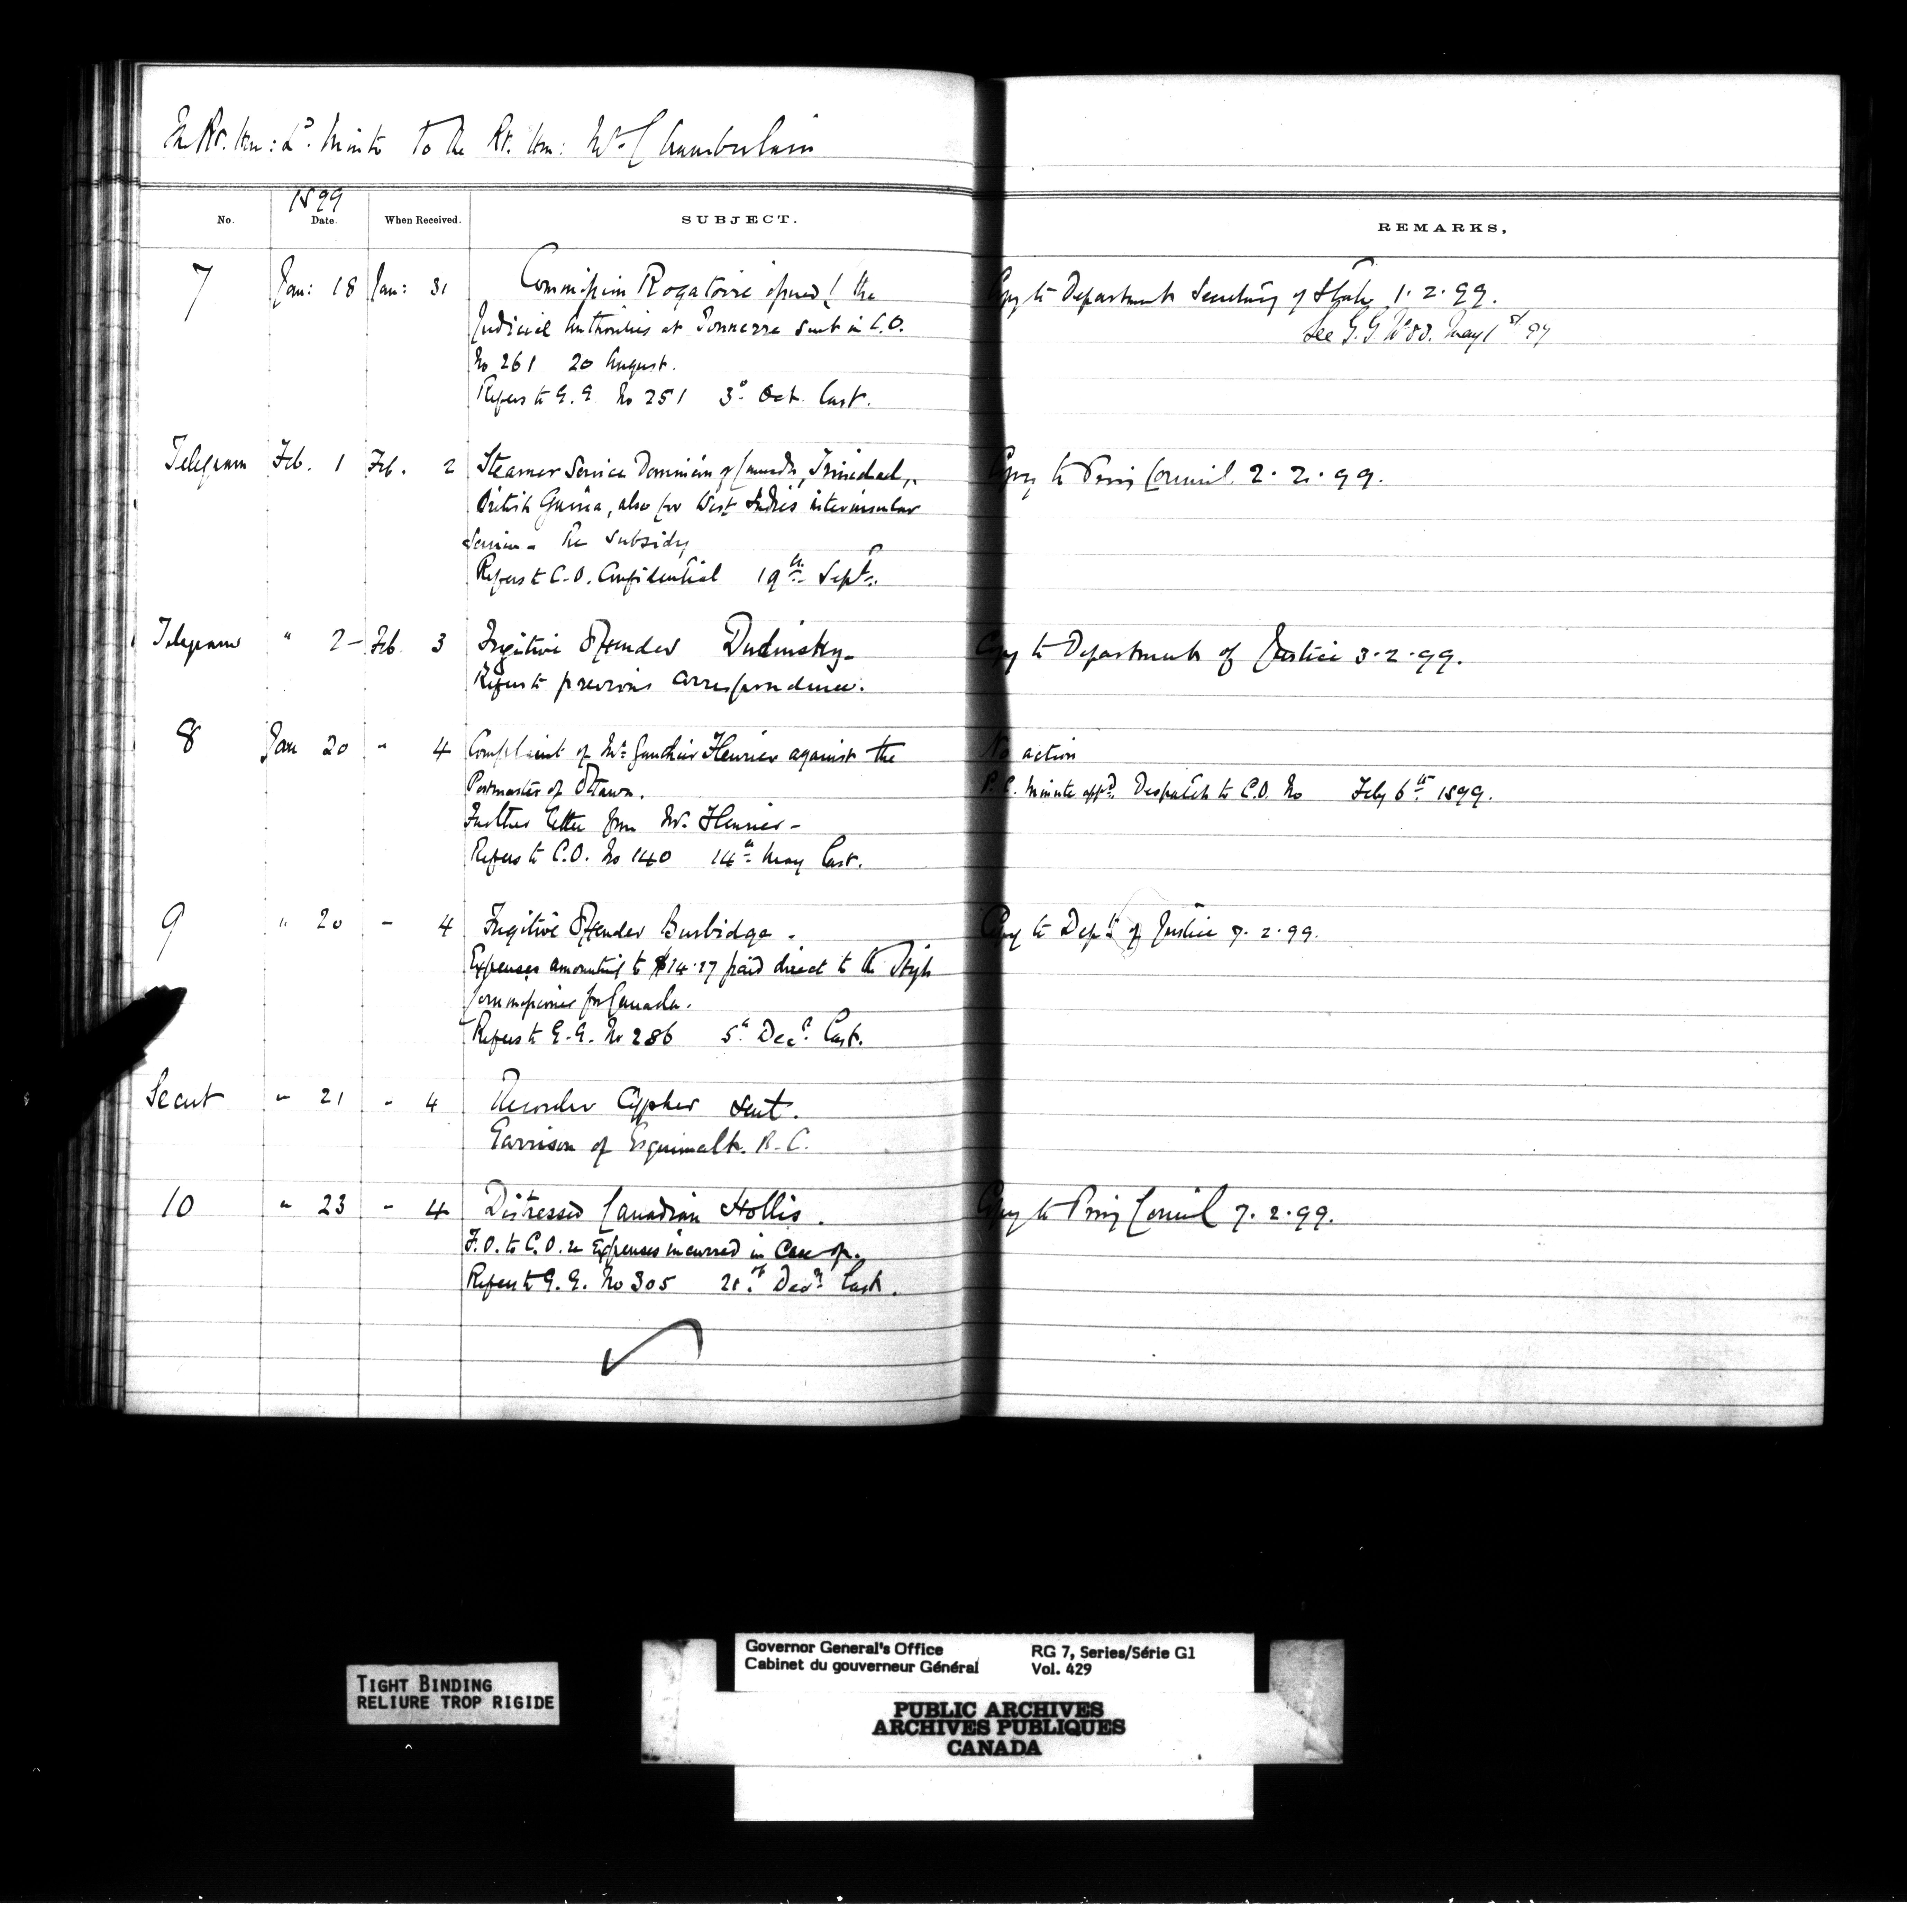 The Rt. Hon: Ld. Minto to the Rt. Hon: Mr. Chamberlain
1899
No. Date. When Received. SUBJECT. REMARKS.
7 Jan: 18 Jan: 31 Commission Rogatoire the
Judicial Authorities at Tonnerre sent in C.O.
No 261 20 August.
Refers to G.G. No 251 3d. Oct. last.
Copy to Department Secretary of State 1.2.99.
See G.G. No 83. May 1st/99
Telegram Feb. 1 Feb. 2 Steamer Service Dominion of Canada, Trinidad,
British Guiana, also for West Indies interinsular
Service - Re Subsidy
Refers to C.O. Confidential 19th Sept.
Copy to Privy Council 2.2.99.
Telegram " 2 - Feb. 3 Fugitive Offender Dudinsky -
Refers to previous correspondence.
Copy to Department of Justice 3.2.99.
8 Jan 20 " 4 Complaint of Mr. Henrier against the
Postmaster of Ottawa.
Further letter from Mr. Henrier -
Refers to C.O. No 140 14th May last.
No action
P.C. Minute appd. Despatch to C.O. No Feby 6th 1899.
9 " 20 - 4 Fugitive Offender Burbidge -
Expenses amounting to $14.17 paid direct to the High
Commissioner for Canada.
Refers to G.G. No 286 5th Decr. last.
Copy to Dept. of Justice 7.2.99.
Secret " 21 - 4 Recorder Cypher sent.
Garrison of Esquimalt. B.C.
10 " 23 - 4 Distressed Canadian Hollis.
F.O. to C.O. re Expenses incurred in Case of.
Refers to G.G. No 305 21st Decr. last.
Copy to Privy Council 7.2.99.
TIGHT BINDING
RELIURE TROP RIGIDE
Governor General's Office RG 7, Series/Série G1
Cabinet du gouverneur Général Vol. 429
PUBLIC ARCHIVES
ARCHIVES PUBLIQUES
CANADA